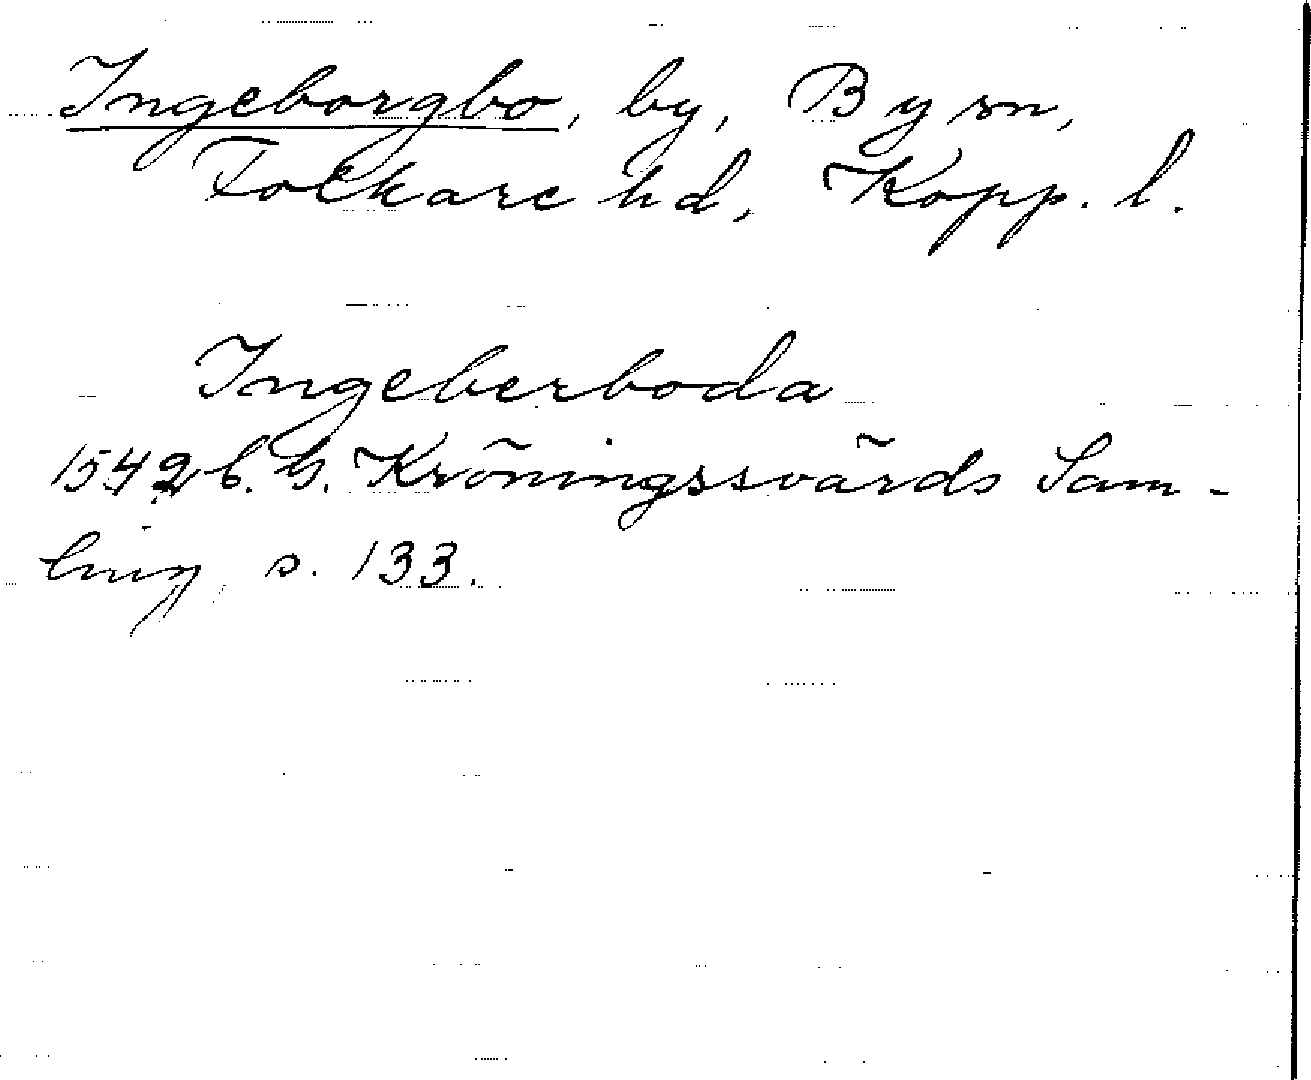 Ingeborgbo, by, By sn,
Folkare hd, Kopp. l.
Ingeberboda
1542 b. G. Kröningssvärds Sam-
ling, s. 133.